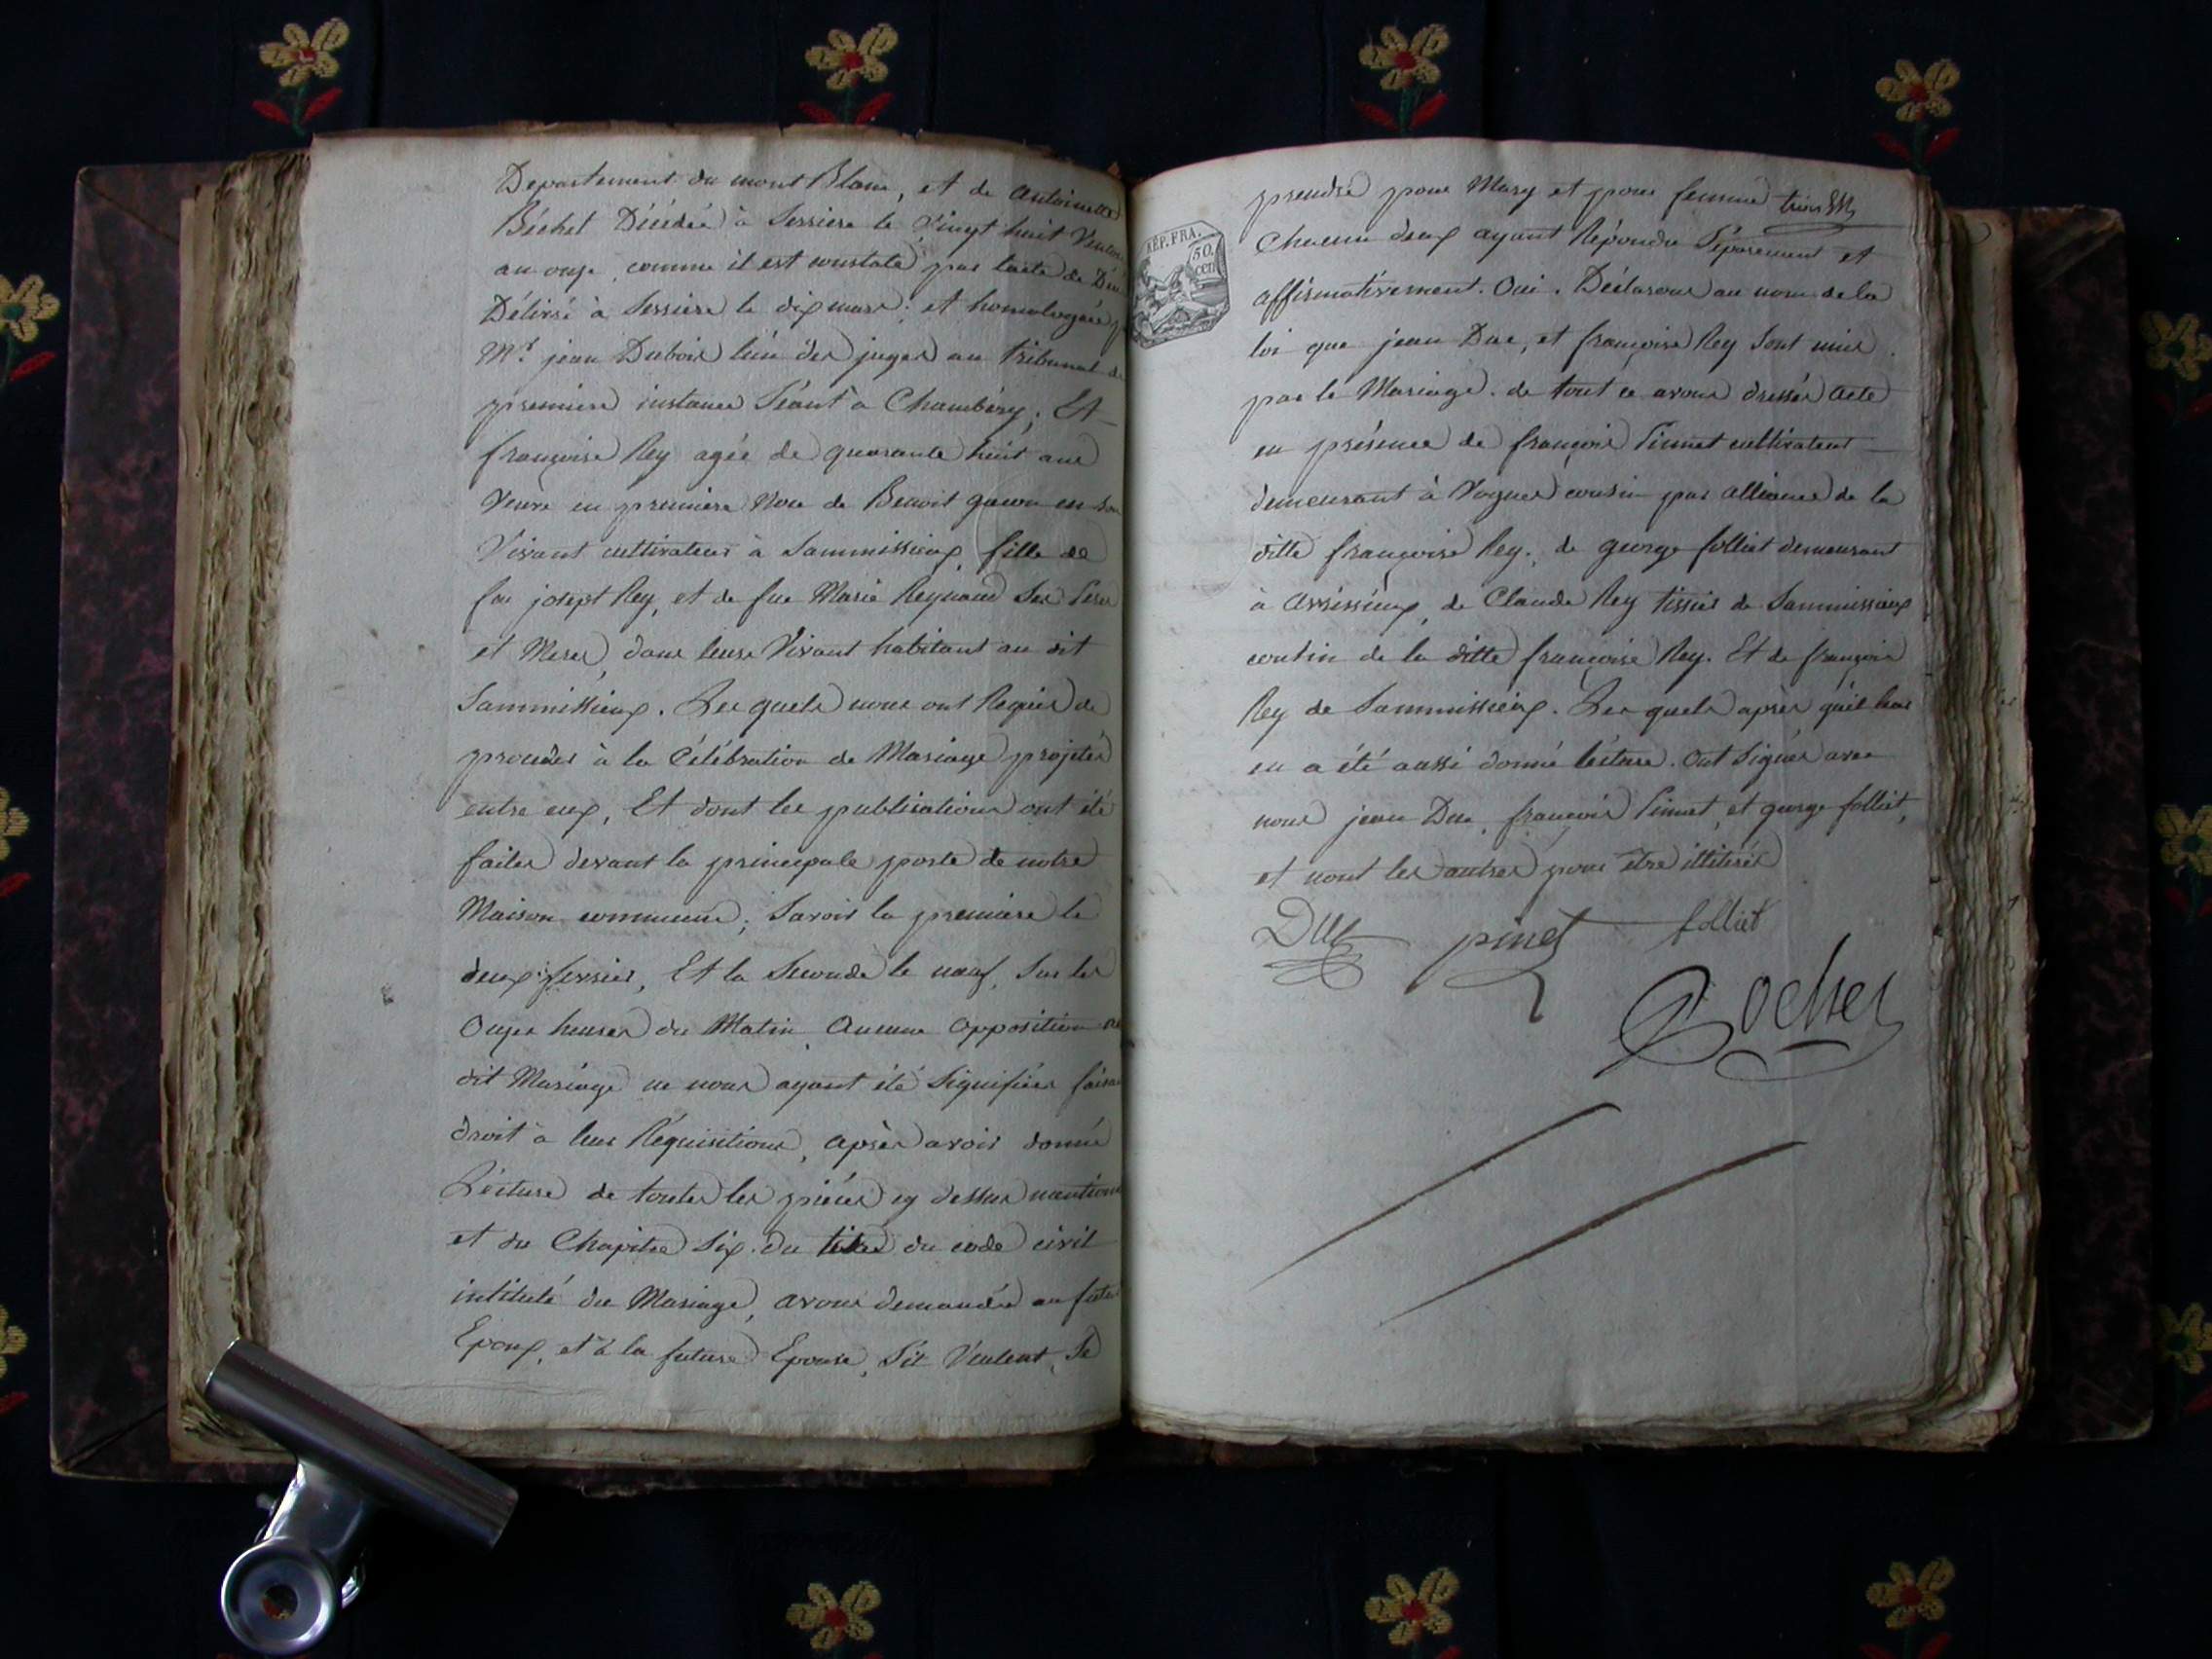 Departement du mont Blanc, et de antoinette
Béchet Décédée à Serriere le Vingt huit
an onze, comme il est constaté par lacte de
Délivré à Serriere le dix mars; et homologuée
Mr. jean Dubois lun des juges au tribunal de
premiere instance Séant à Chambéry; Et
françoise Rey agée de quarante huit ans
Veuve en premiere Noce de Benoit en son
Vivant cultivateur à Sammissieux, fille de
feu josept Rey, et de fue Marie Reynaud Ses Pere
et Mere, dans leurs Vivant habitant au dit
Sammissieux. Les quels nous ont Requis de
proceder à la Célébration de Mariage projetés
entre eux, Et dont les publications ont été
faites devant la principale porte de notre
Maison commune; Savoir la premiere le
deux fevrier, Et la Seconde le neuf, Sur les
Onzes heures du Matin, Aucune opposition au
dit Mariage ne nous ayant été Signifiées
droit à leur Réquisitions, après avoir donné
Lécture de toutes les piéces cy dessus
et du Chapitre Six. du titre du code civil
intitulé du Mariage, avons demandés au futur
Epoux, et à la future Epouse, S'il Veulent, Se
prendre pour Mary et pour femme
REP. FRA.
50.
cen
Chacun deux ayant Répondu Séparement et
affirmativement. Oui. Déclarons au nom de la
loi que jean Duc, et françoise Rey Sont unis
par le Mariage. de tout ce avons dressés acte
en présence de françois Pinnet cultivateur
demeurant à Vognes cousin par alliance de la
ditte françoise Rey, de george folliet demeurant
à arvissieux, de Claude Rey tissier de Sammissieux
coutin de la ditte françoise Rey. Et de françois
Rey de Sammissieux. Les quels après quil leur
en a été aussi donné lécture. Ont Signés avec
nous jean Duc, françois Pinnet, et george folliet,
et nont les autres pour être illiterés
Duc pinet folliet
Rochet